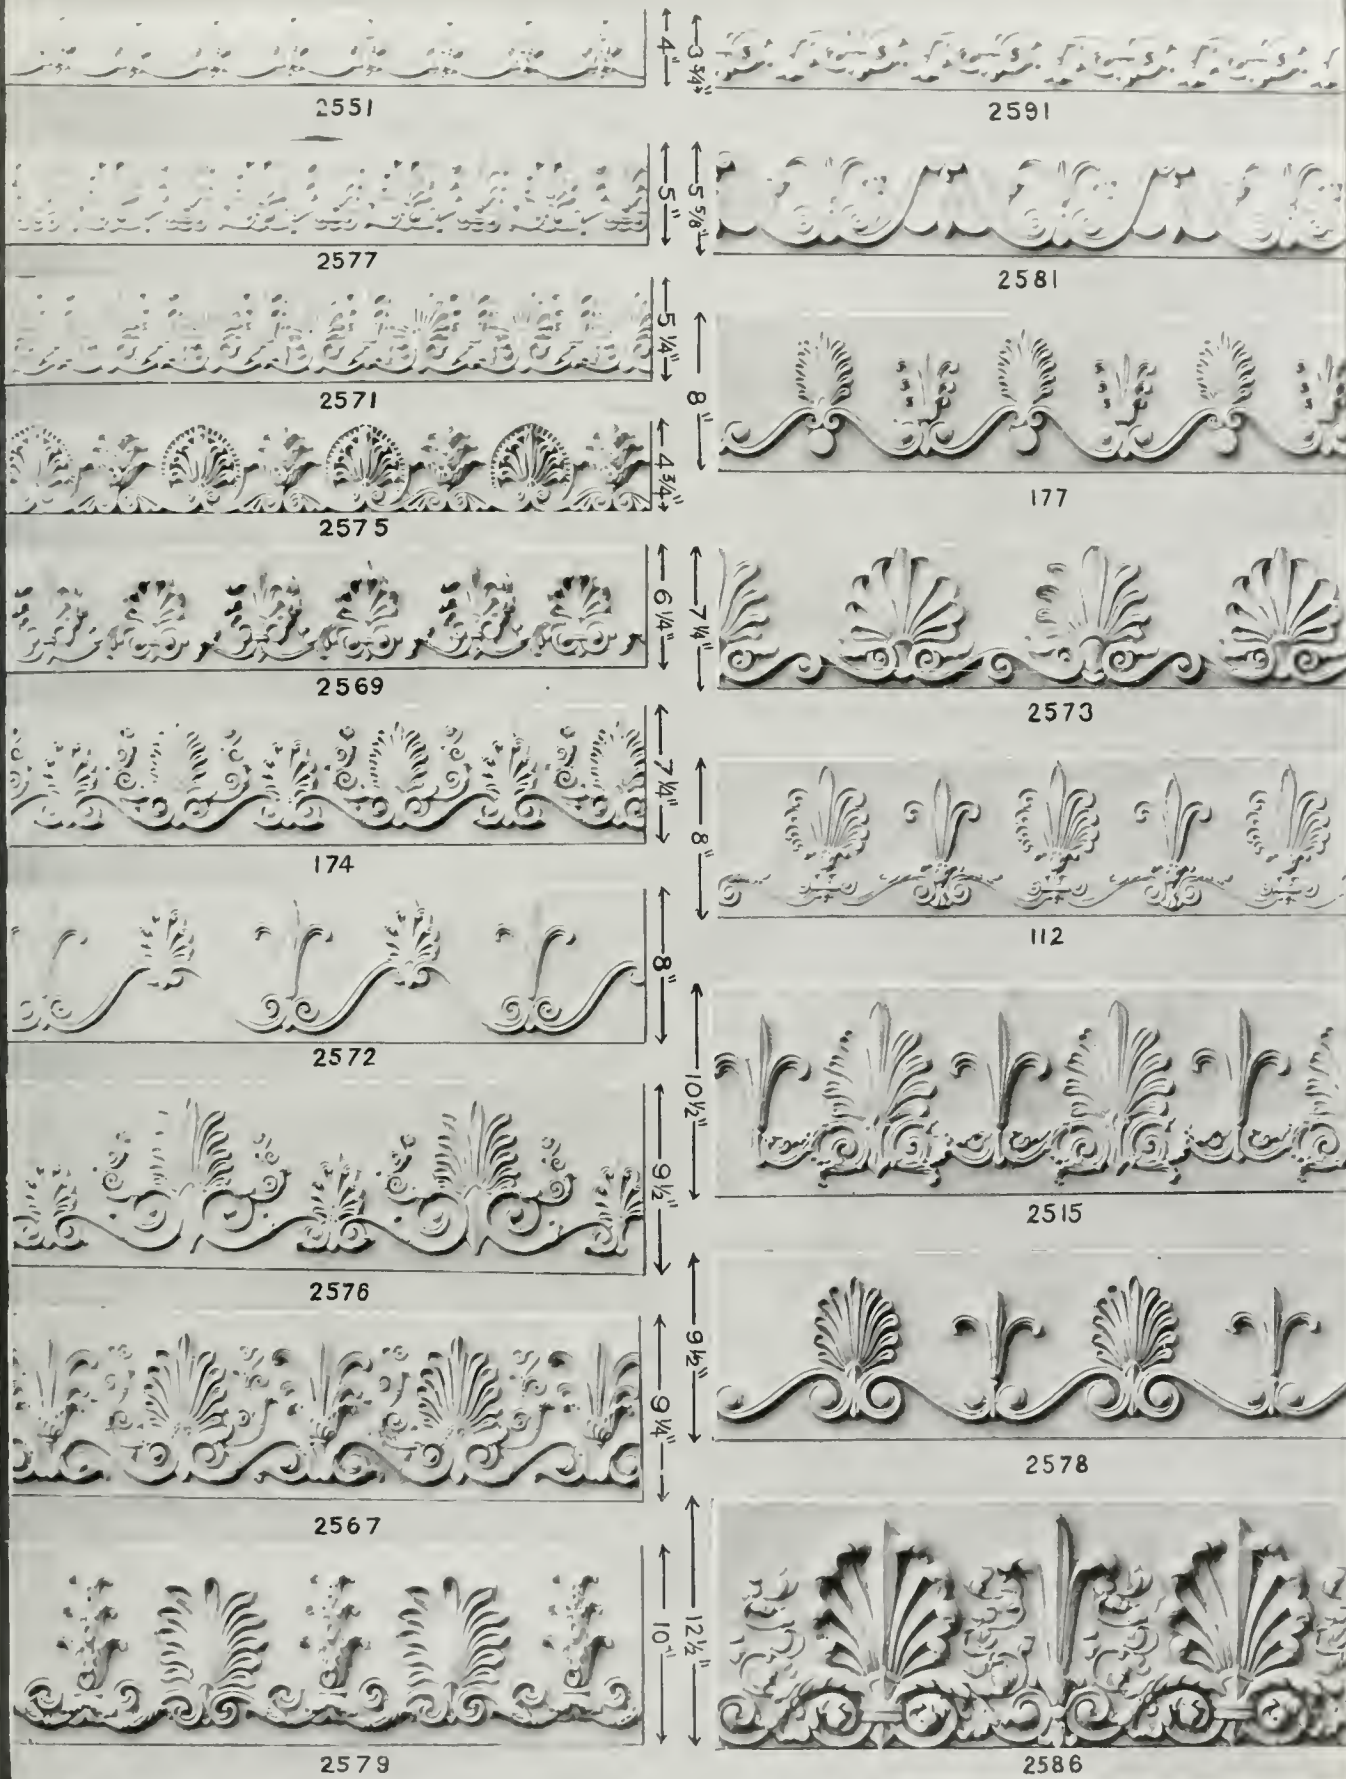 4"
2551
5"
2577
5 1/4"
2571
4 3/4"
2575
6 1/4"
2569
7 1/4"
174
8"
2572
9 1/2"
2576
9 1/4"
2567
10"
2579
3 3/4"
2591
5 5/8"
2581
8"
177
7 1/4"
2573
8"
112
10 1/2"
2515
9 1/2"
2578
12 1/2"
2586